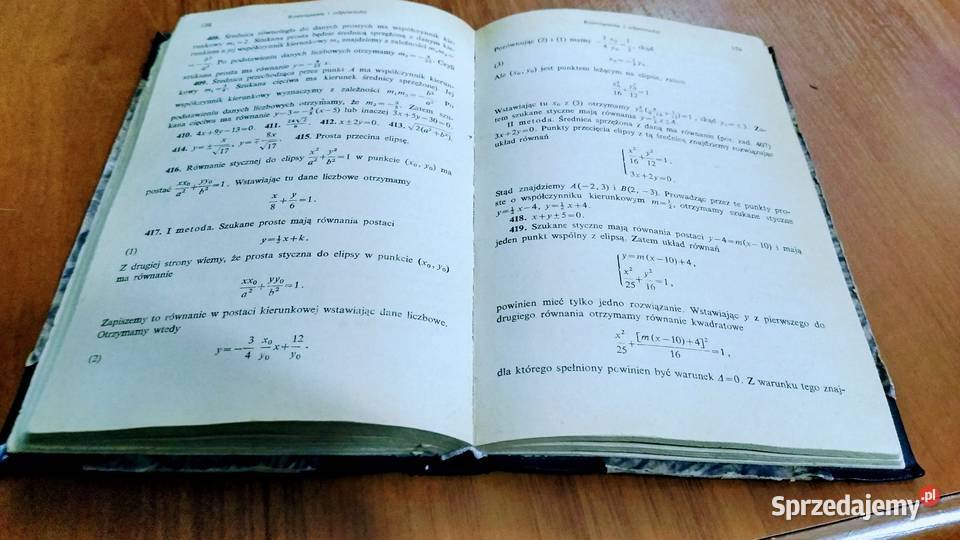 158
Rozwiązania i odpowiedzi
408. Średnica równoległa do danych prostych ma współczynnik kie-
runkowy m₁=2. Szukana prosta będzie średnicą sprzężoną z daną
a jej współczynnik kierunkowy m₂ znajdziemy z zależności
Po podstawieniu danych liczbowych otrzymamy
szukana prosta ma równanie
409. Średnica przechodząca przez punkt A ma współczynnik kierun-
kowy Szukana cięciwa ma kierunek średnicy sprzężonej. Jej
współczynnik kierunkowy wyznaczymy z zależności m₁m₂=-b²/a². Po
podstawieniu danych liczbowych otrzymamy, że Zatem szu-
kana cięciwa ma równanie y-3=-3/5(x-5) lub inaczej 3x+5y-30=0.
410. 4x+9y-13=0. 411. 412. x±2y=0. 413. √2(a²+b²).
414. y=±x/√17, y=∓8x/√17 415. Prosta przecina elipsę.
416. Równanie stycznej do elipsy x²/a²+y²/b²=1 w punkcie (x₀, y₀) ma
postać xx₀/a²+yy₀/b²=1. Wstawiając tu dane liczbowe otrzymamy
x/8+y/6=1.
417. I metoda. Szukane proste mają równania postaci
(1) y=½x+k.
Z drugiej strony wiemy, że prosta styczna do elipsy w punkcie (x₀, y₀)
ma równanie
xx₀/a²+yy₀/b²=1.
Zapiszemy to równanie w postaci kierunkowej wstawiając dane liczbowe.
Otrzymamy wtedy
(2) y=-3/4 x₀/y₀ x+12/y₀.
Rozwiązania i odpowiedzi
159
Porównując (2) i (1) mamy -3/4 x₀/y₀=1/2, skąd
(3)
Ale (x₀, y₀) jest punktem leżącym na elipsie, zatem
x₀²/16+y₀²/12=1
Wstawiając tu x₀ z (3) otrzymamy skąd y₀=±3. Za-
tem szukane styczne mają równania y=½x±4.
II metoda. Średnica sprzężona z daną ma równanie (por. zad. 407)
3x+2y=0. Punkty przecięcia elipsy z tą średnicą znajdziemy rozwiązując
układ równań
x²/16+y²/12=1,
3x+2y=0.
Stąd znajdziemy A(-2, 3) i B(2, -3). Prowadząc przez te punkty pro-
ste o współczynniku kierunkowym m=½, otrzymamy szukane styczne
y=½x-4, y=½x+4.
418. x+y±5=0.
419. Szukane styczne mają równania postaci y-4=m(x-10) i mają
jeden punkt wspólny z elipsą. Zatem układ równań
y=m(x-10)+4,
x²/25+y²/16=1,
powinien mieć tylko jedno rozwiązanie. Wstawiając y z pierwszego do
drugiego równania otrzymamy równanie kwadratowe
x²/25+[m(x-10)+4]²/16=1,
dla którego spełniony powinien być warunek Δ=0. Z warunku tego znaj-
Sprzedajemy.pl